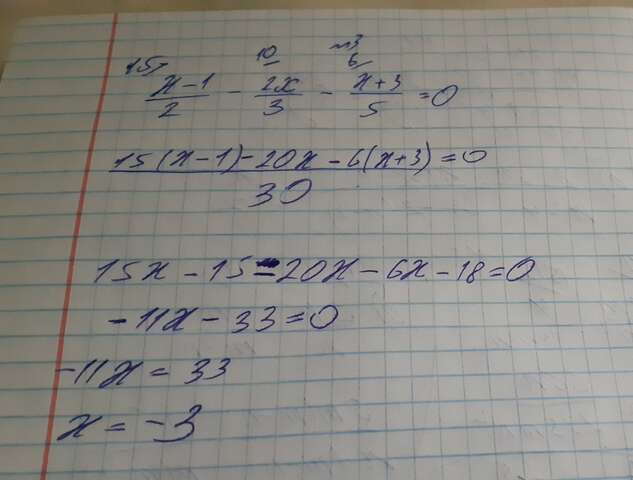 15/ 10 6/
x-1/2 - 2x/3 - x+3/5 = 0
15(x-1)-20x-6(x+3)/30 = 0
15x - 15 - 20x - 6x - 18 = 0
-11x - 33 = 0
-11x = 33
x = -3